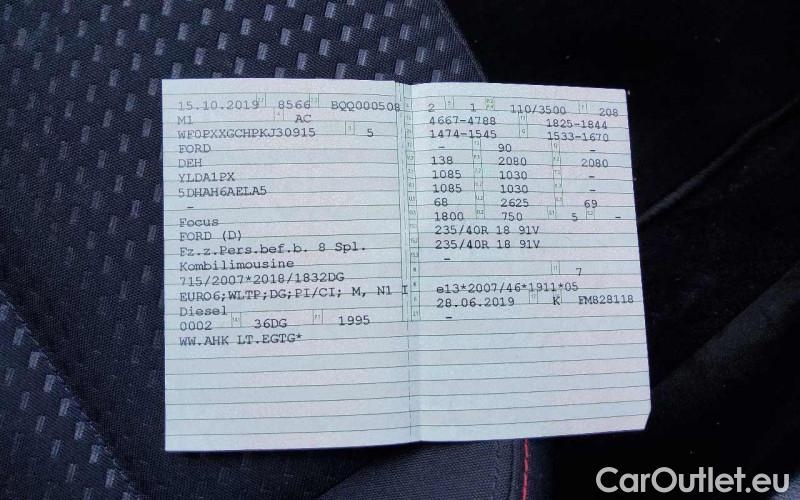 15.10.2019 8566 BQQ000508
M1 AC
WF0PXXGCHPKJ30915 5
FORD
DEH
YLDA1PX
5DHAH6AELA5
–
Focus
FORD (D)
Fz.z.Pers.bef.b. 8 Spl.
Kombilimousine
715/2007*2018/1832DG
EURO6;WLTP;DG;PI/CI; M, N1 I
Diesel
0002 36DG 1995
WW.AHK LT.EGTG*
2 1 110/3500 208
4667-4788 1825-1844
1474-1545 1533-1670
– 90 –
138 2080 2080
1085 1030 –
1085 1030 –
68 2625 69
1800 750 5 –
235/40R 18 91V
235/40R 18 91V
–
7
e13*2007/46*1911*05
28.06.2019 K FM828118
–
CarOutlet.eu